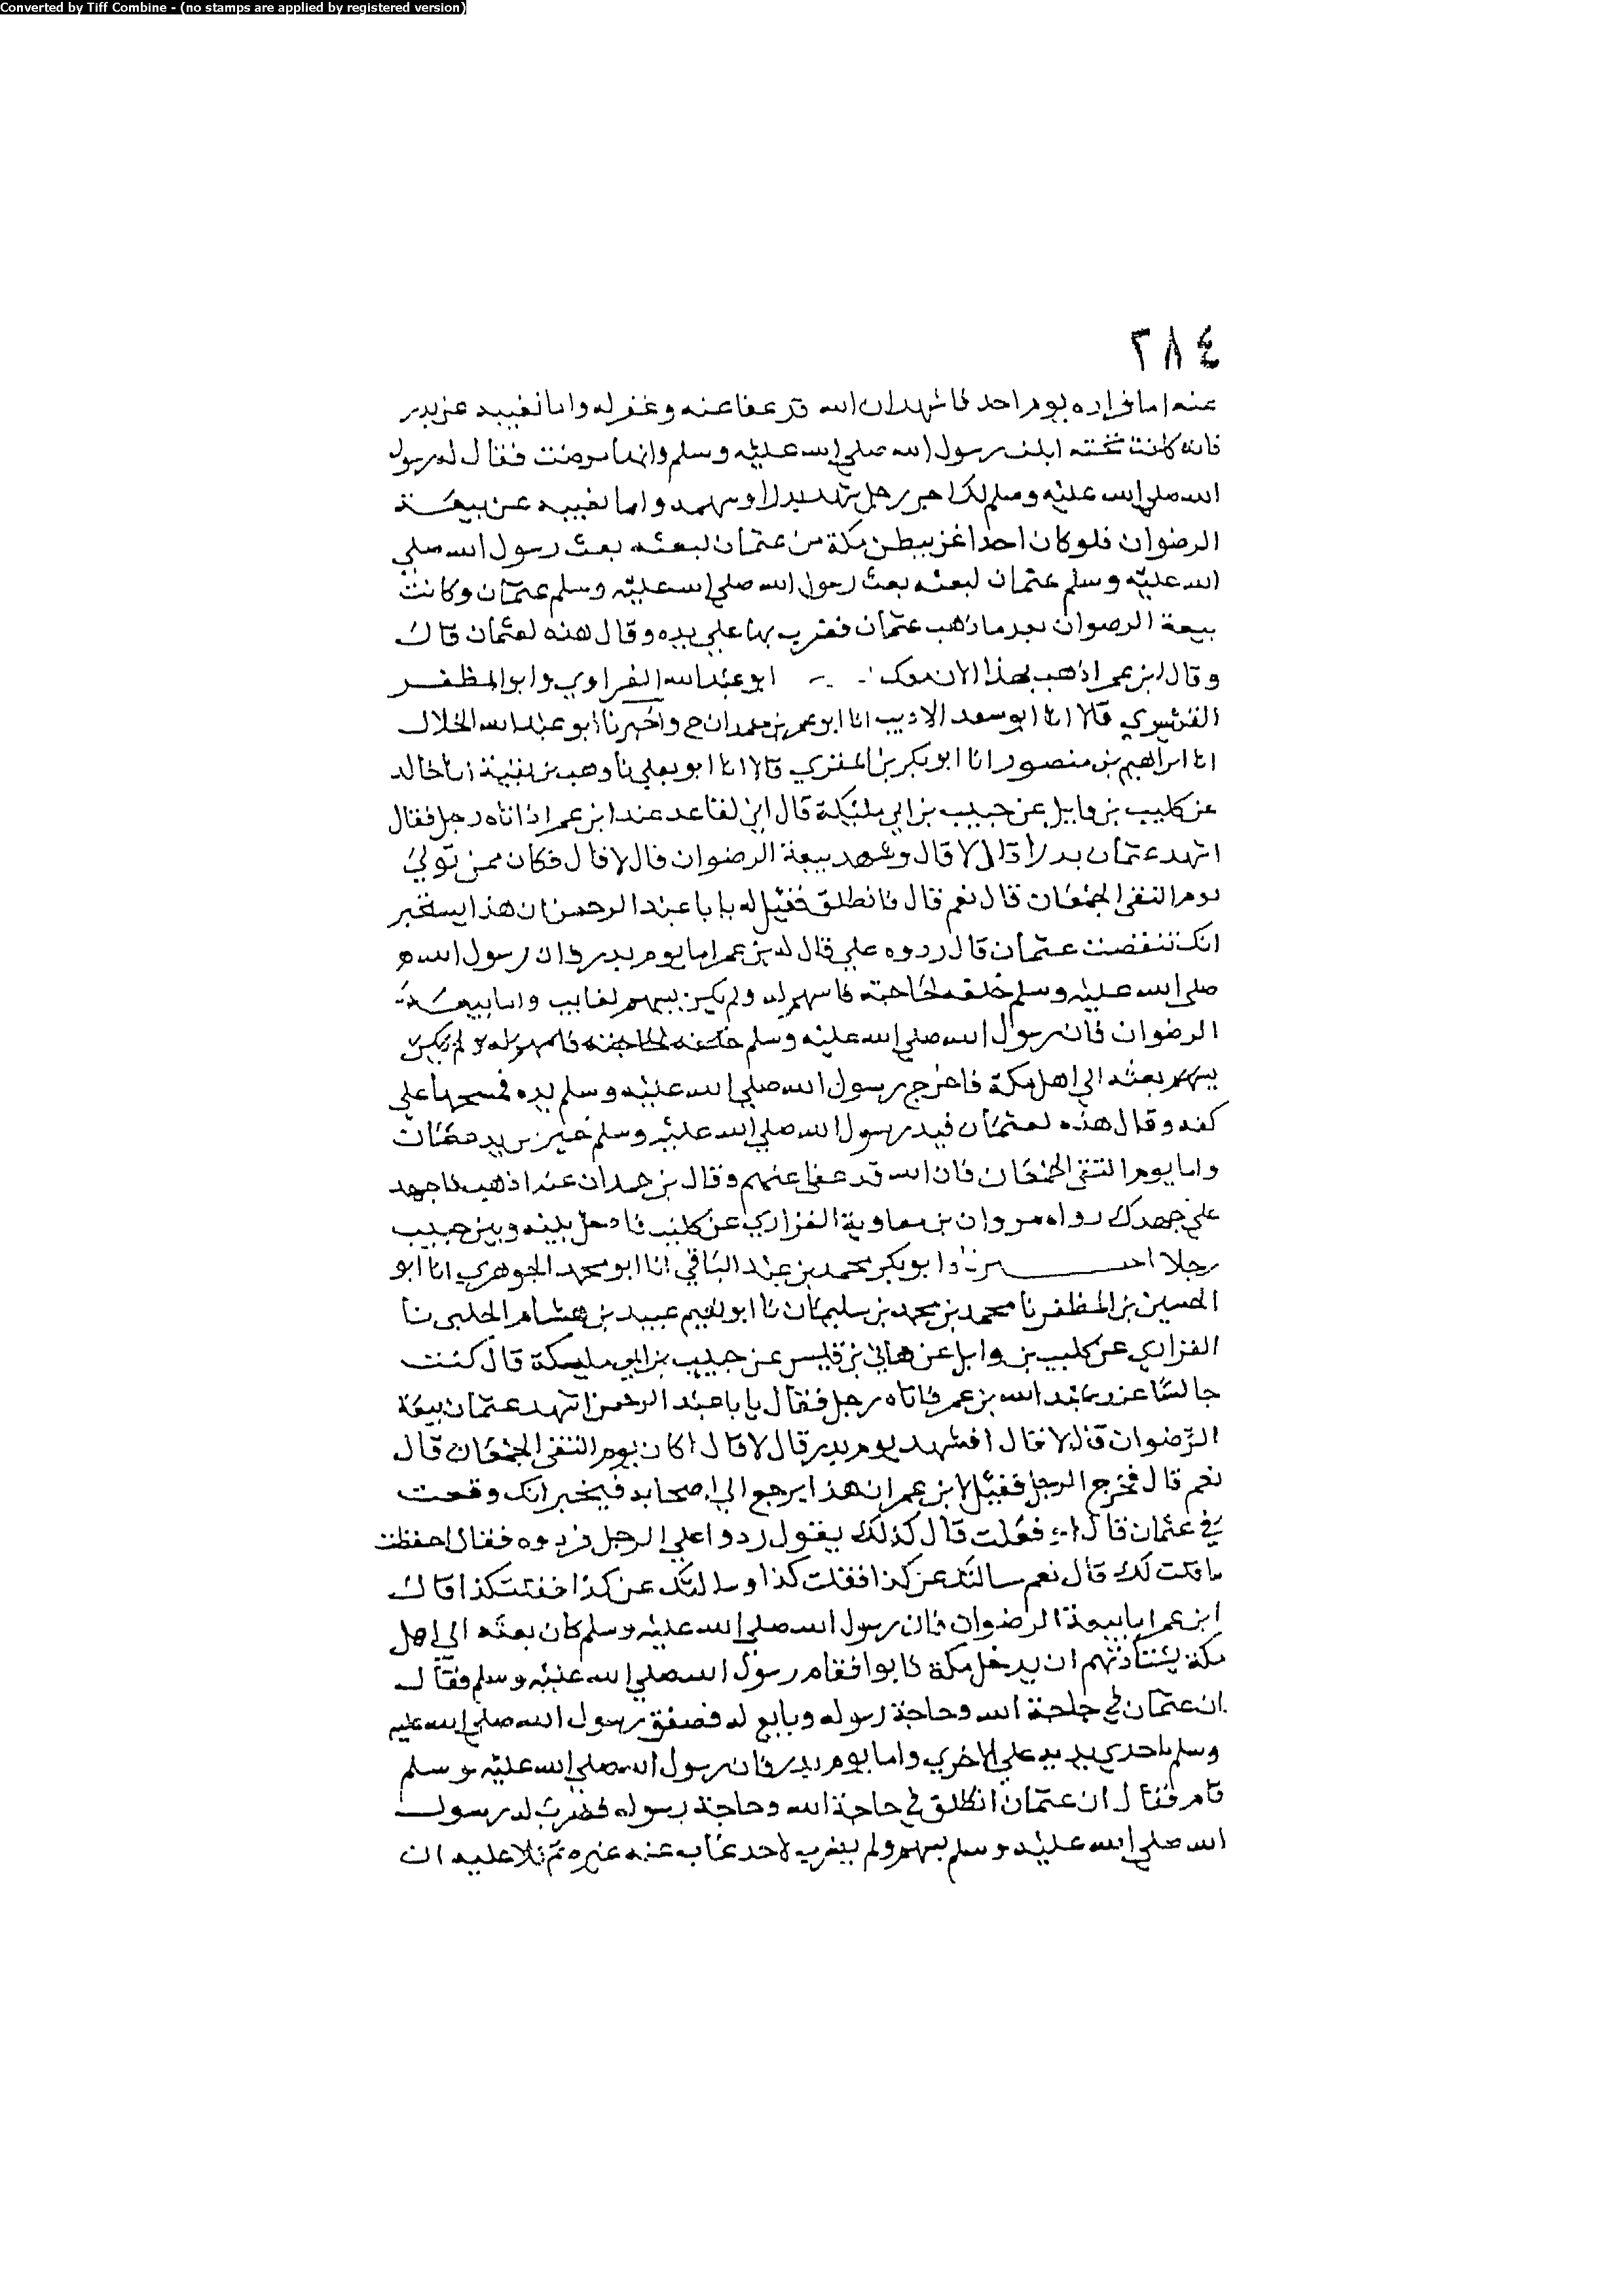 Converted by Tiff Combine - (no stamps are applied by registered version)
٢٨٤
عنه اما فراره يوم احد فاشهد ان الله قد عفا عنه وغفر له واما تغيبه عن بدر
فانه كانت تحته ابنت رسول الله صلي الله عليه وسلم وانها مرضت فقال له رسول
الله صلي الله عليه وسلم لك اجر رجل شهد بدرا وسهمه واما تغيبه عن بيعة
الرضوان فلو كان احدا اعز ببطن مكة من عثمان لبعثه بعث رسول الله صلي
الله عليه وسلم عثمان لبعثه بعث رسول الله صلي الله عليه وسلم عثمان وكانت
بيعة الرضوان بعد ما ذهب عثمان فضرب بها علي يده وقال هذه لعثمان قال
وقال ابن عمر اذهب بهذا الان معك ابو عبد الله الفراوي وابو المظفر
القشيري قالا انا ابو سعد الاديب انا ابو عمر بن حمدان ح واخبرنا ابو عبد الله الخلال
انا ابراهيم بن منصور انا ابو بكر بن المقري قالا انا ابو يعلي نا وهب بن بقية انا خالد
عن كليب بن وايل عن حبيب بن ابي مليكة قال اني لقاعد عند ابن عمر اذ اتاه رجل فقال
اشهد عثمان بدرا قال لا قال وشهد بيعة الرضوان قال لا قال فكان ممن تولي
يوم التقي الجمعان قال نعم قال فانطلق فقيل له يا با عبد الرحمن ان هذا يستخبر
انك تنقصت عثمان قال ردوه علي قال له بن عمر اما يوم بدر فان رسول الله
صلي الله عليه وسلم خلفه لحاجته فاسهم له ولم يكن يسهم لغايب واما بيعة
الرضوان فان رسول الله صلي الله عليه وسلم خلفه لحاجته فاسهم له ولم يكن
يسهم بعثه الي اهل مكة فاخرج رسول الله صلي الله عليه وسلم يده فمسحها علي
كفه وقال هذه لعثمان فيد رسول الله صلي الله عليه وسلم خير من يد عثمان
واما يوم التقي الجمعان فان الله قد عفي عنهم وقال بن حمدان عنه اذهب فاجهد
علي جهدك رواه مروان بن معاوية الفزاري عن كليب فادخل بينه وبين حبيب
رجلا اخبرناه ابو بكر محمد بن عبد الباقي انا ابو محمد الجوهري انا ابو
الحسين بن المظفر نا محمد بن محمد بن سليمان نا ابو نعيم عبيد بن هشام الحلبي نا
الفزاري عن كليب بن وايل عن هاني بن قيس عن حبيب بن ابي مليكة قال كنت
جالسا عند عبد الله بن عمر فاتاه رجل فقال يا با عبد الرحمن اشهد عثمان بيعة
الرضوان قال لا قال افشهد يوم بدر قال لا قال اكان يوم التقي الجمعان قال
نعم قال فخرج الرجل فقيل لابن عمر ان هذا يرجع الي اصحابه فيخبر انك وقعت
في عثمان قال فعلت قال كذلك يقول ردوا علي الرجل فردوه فقال احفظت
ما قلت لك قال نعم سالتك عن كذا فقلت كذا وسالتك عن كذا فقلت كذا قال
ابن عمر اما بيعة الرضوان فان رسول الله صلي الله عليه وسلم كان بعثه الي اهل
مكة يستأذنهم ان يدخل مكة فابوا فقام رسول الله صلي الله عليه وسلم فقال
ان عثمان في حاجة الله وحاجة رسوله وبايع له فصفق رسول الله صلي الله عليه
وسلم باحدي يديه علي الاخري واما يوم بدر فان رسول الله صلي الله عليه وسلم
قام فقال ان عثمان انطلق في حاجة الله وحاجة رسوله فضرب له رسول
الله صلي الله عليه وسلم بسهم ولم يضرب لاحد غاب عنه غيره ثم تلا عليه ان